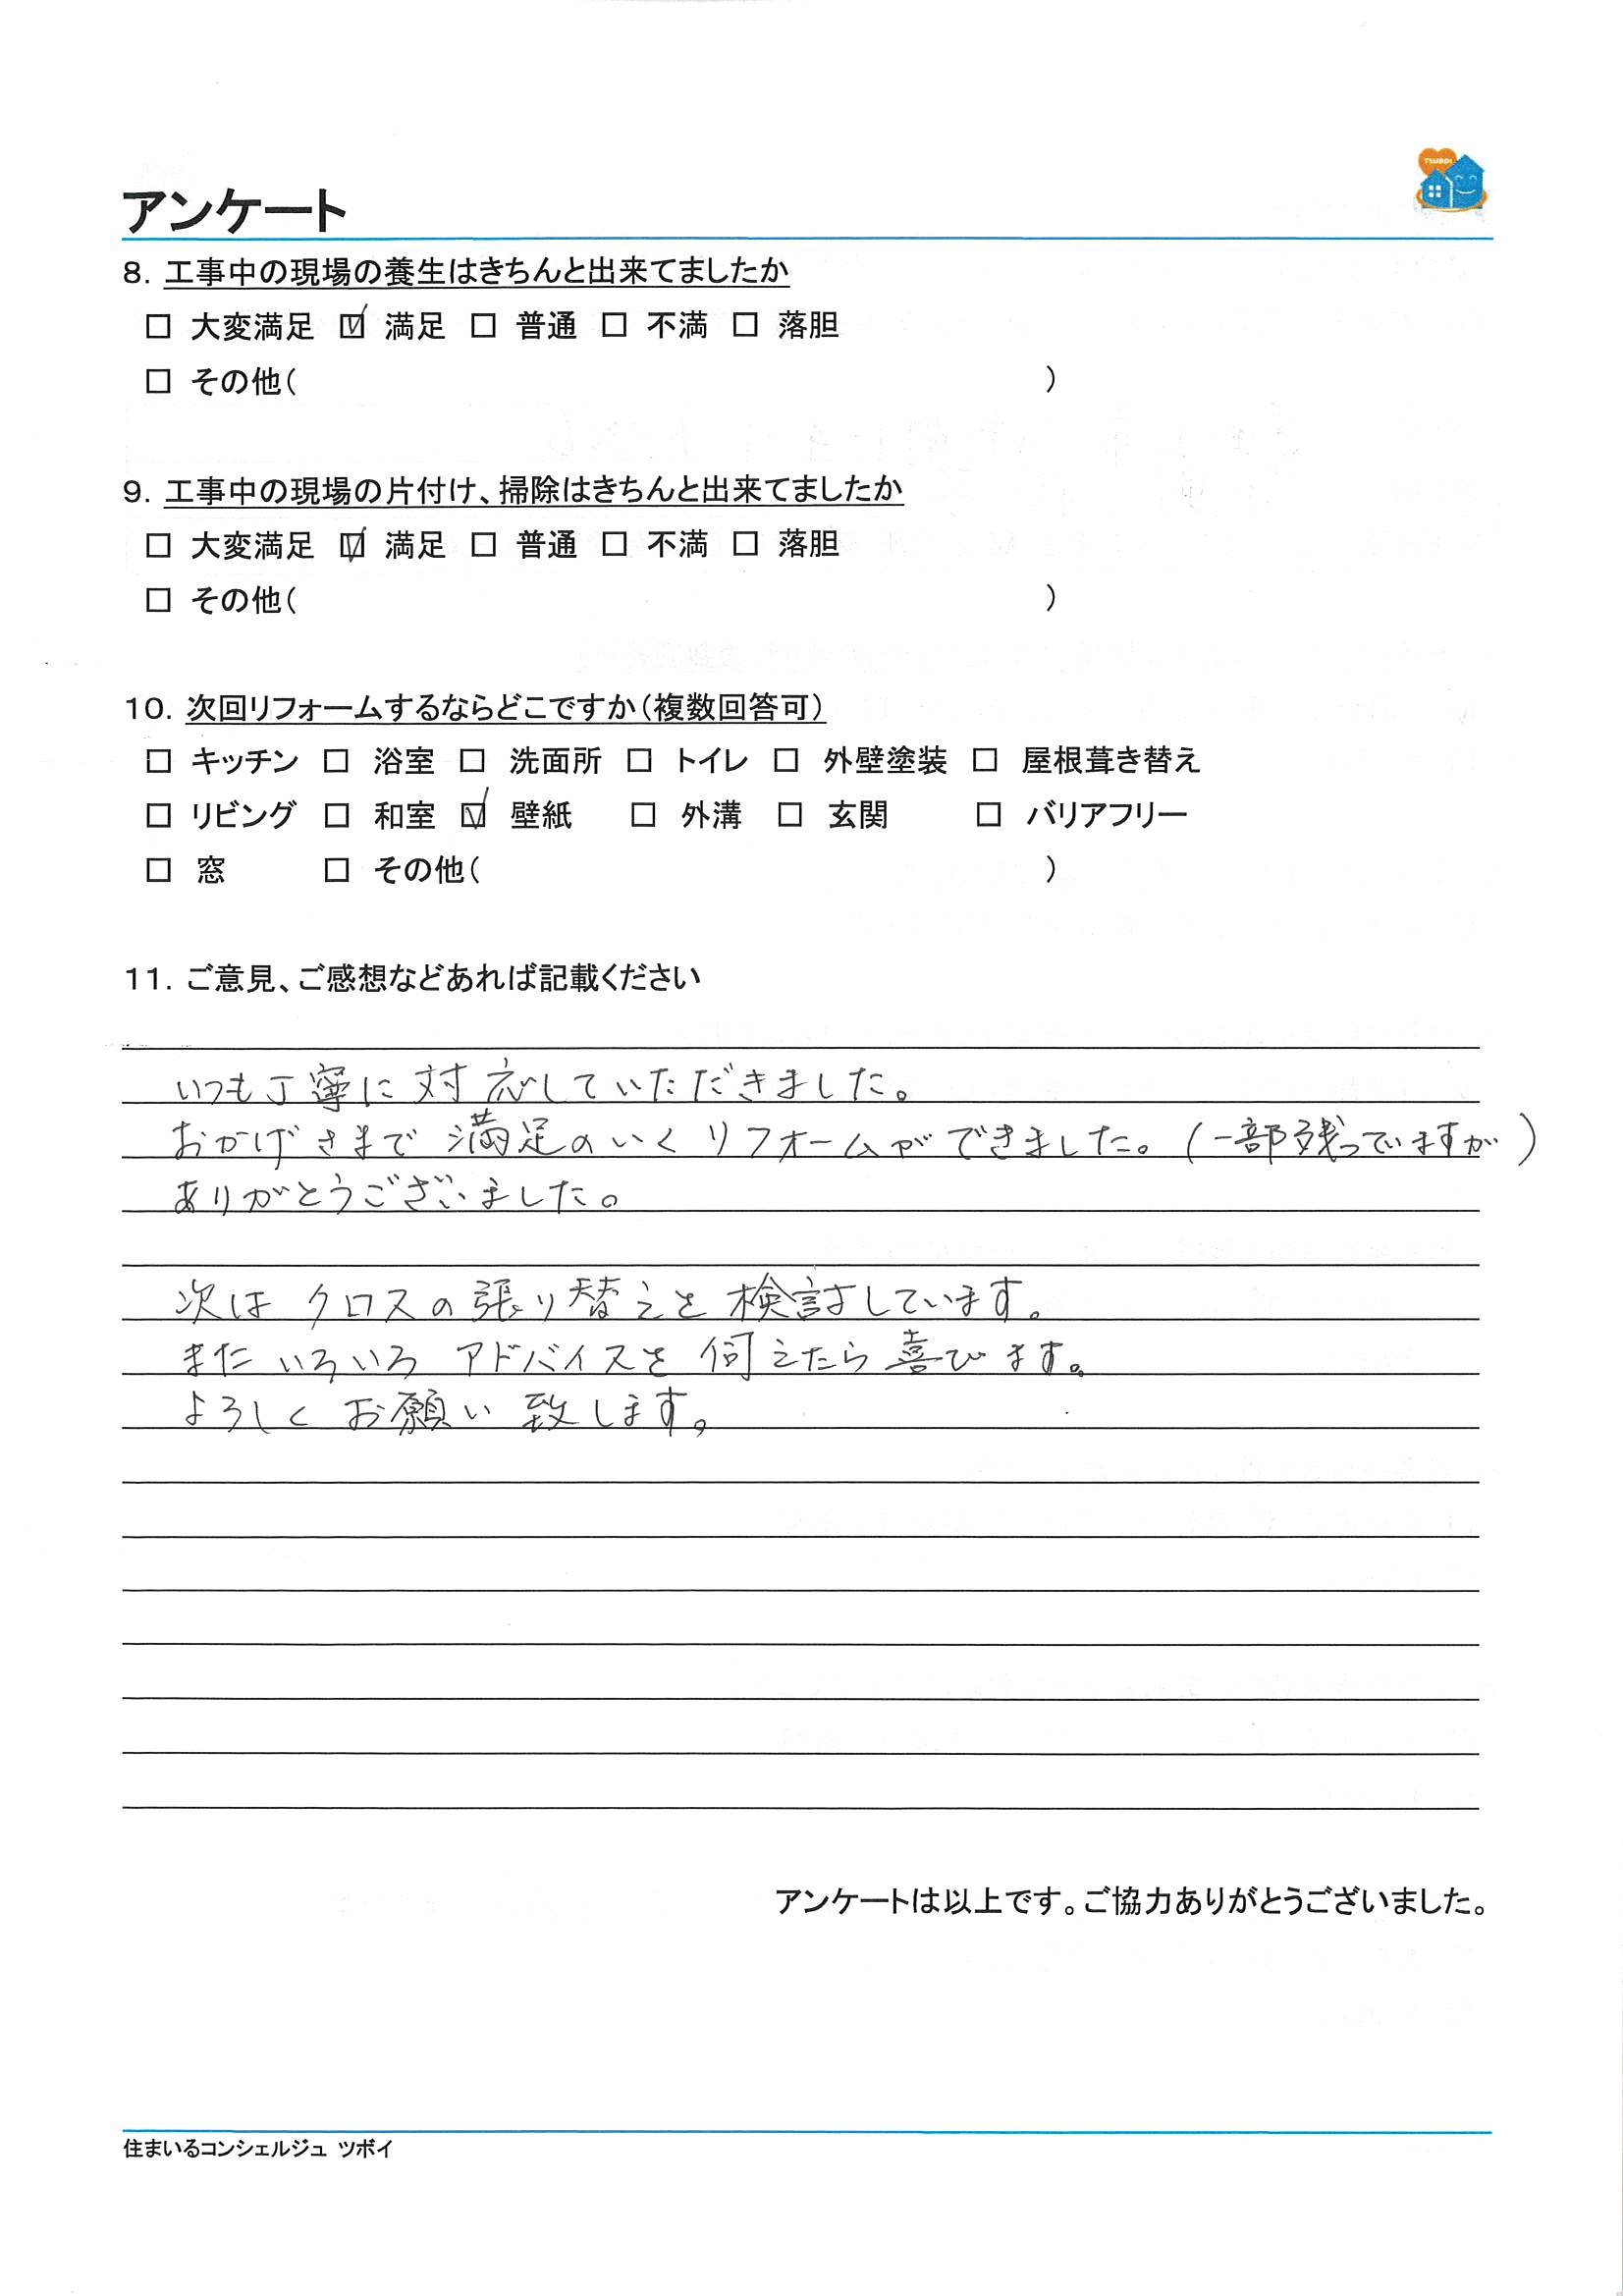 TSUBOI
アンケート
8. 工事中の現場の養生はきちんと出来てましたか
□ 大変満足 ☑ 満足 □ 普通 □ 不満 □ 落胆
□ その他( )
9. 工事中の現場の片付け、掃除はきちんと出来てましたか
□ 大変満足 ☑ 満足 □ 普通 □ 不満 □ 落胆
□ その他( )
10. 次回リフォームするならどこですか(複数回答可)
□ キッチン □ 浴室 □ 洗面所 □ トイレ □ 外壁塗装 □ 屋根葺き替え
□ リビング □ 和室 ☑ 壁紙 □ 外溝 □ 玄関 □ バリアフリー
□ 窓 □ その他( )
11. ご意見、ご感想などあれば記載ください
いつも丁寧に対応していただきました。
おかげさまで満足のいくリフォームができました。(一部残っていますが)
ありがとうございました。
次はクロスの張り替えを検討しています。
またいろいろアドバイスを伺えたら喜びます。
よろしくお願い致します。
アンケートは以上です。ご協力ありがとうございました。
住まいるコンシェルジュ ツボイ